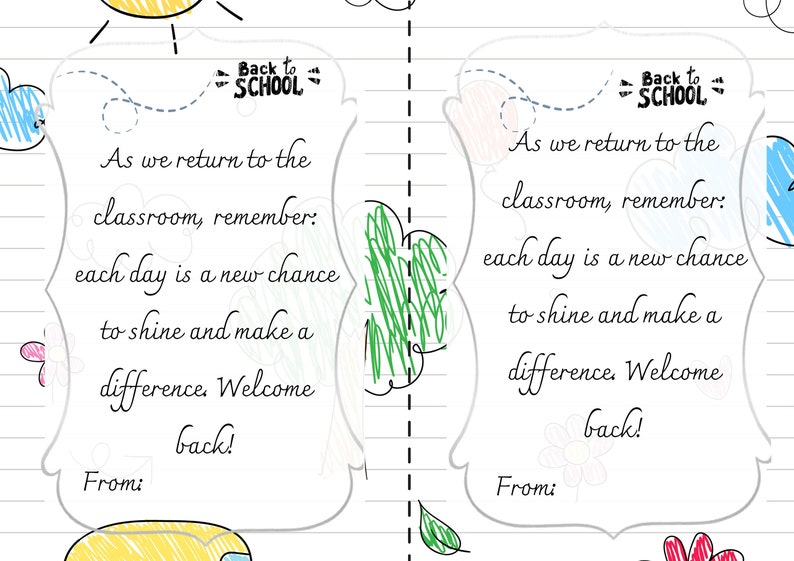 Back to
SCHOOL
As we return to the
classroom, remember:
each day is a new chance
to shine and make a
difference. Welcome
back!
From:
Back to
SCHOOL
As we return to the
classroom, remember:
each day is a new chance
to shine and make a
difference. Welcome
back!
From: